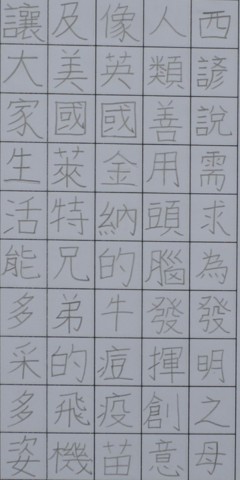 西諺說需求為發明之母
人類善用頭腦發揮創意
像英國金納的牛痘疫苗
及美國萊特兄弟的飛機
讓大家生活能多采多姿